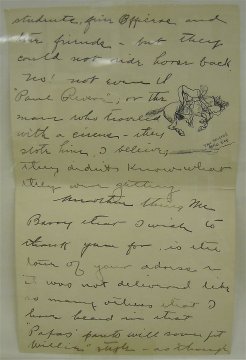 students, fire Officers and
the friends - but they
could not ride horse back
Yes! not even if
"Paul Revere", or the
man who traveled
with a circus - they
stole him, I believe,
they didn't know what
they were getting
Another thing Mr
Barry that I wish to
thank you for, is the
tone of your address,
it was not delivered like
so many others that I
have heard in that
"Papas' pants will soon fit
Willie" style - as though